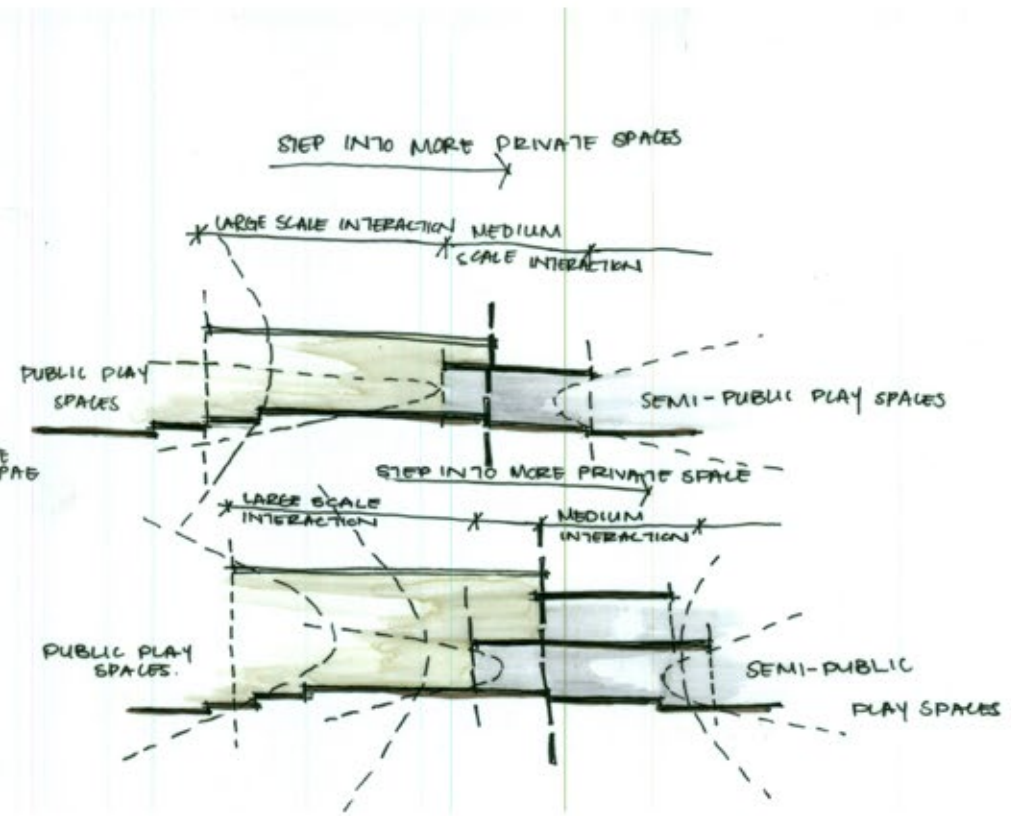 STEP INTO MORE PRIVATE SPACES
LARGE SCALE INTERACTION
MEDIUM
SCALE INTERACTION
PUBLIC PLAY
SPACES
SEMI-PUBLIC PLAY SPACES
STEP INTO MORE PRIVATE SPACE
LARGE SCALE
INTERACTION
MEDIUM
INTERACTION
PUBLIC PLAY
SPACES.
SEMI-PUBLIC
PLAY SPACES